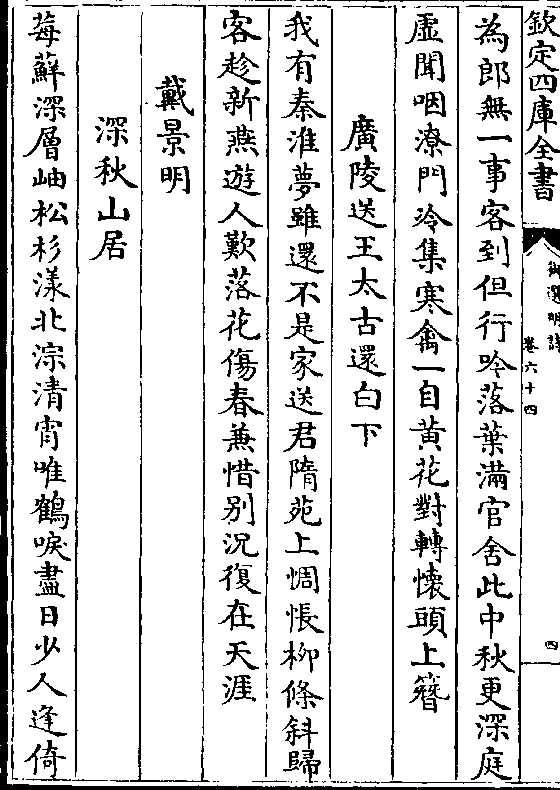 欽定四庫全書
御選明詩
卷六十四
四
為郎無一事客到但行吟落葉滿官舍此中秋更深庭
虚聞咽潦門冷集寒禽一自黄花對轉懷頭上簪
廣陵送王太古還白下
我有秦淮夢雖還不是家送君隋苑上惆悵柳條斜歸
客趁新燕遊人歎落花傷春兼惜别況復在天涯
戴景明
深秋山居
莓蘚深層岫松杉漾北淙清宵唯鶴唳盡日少人逢倚